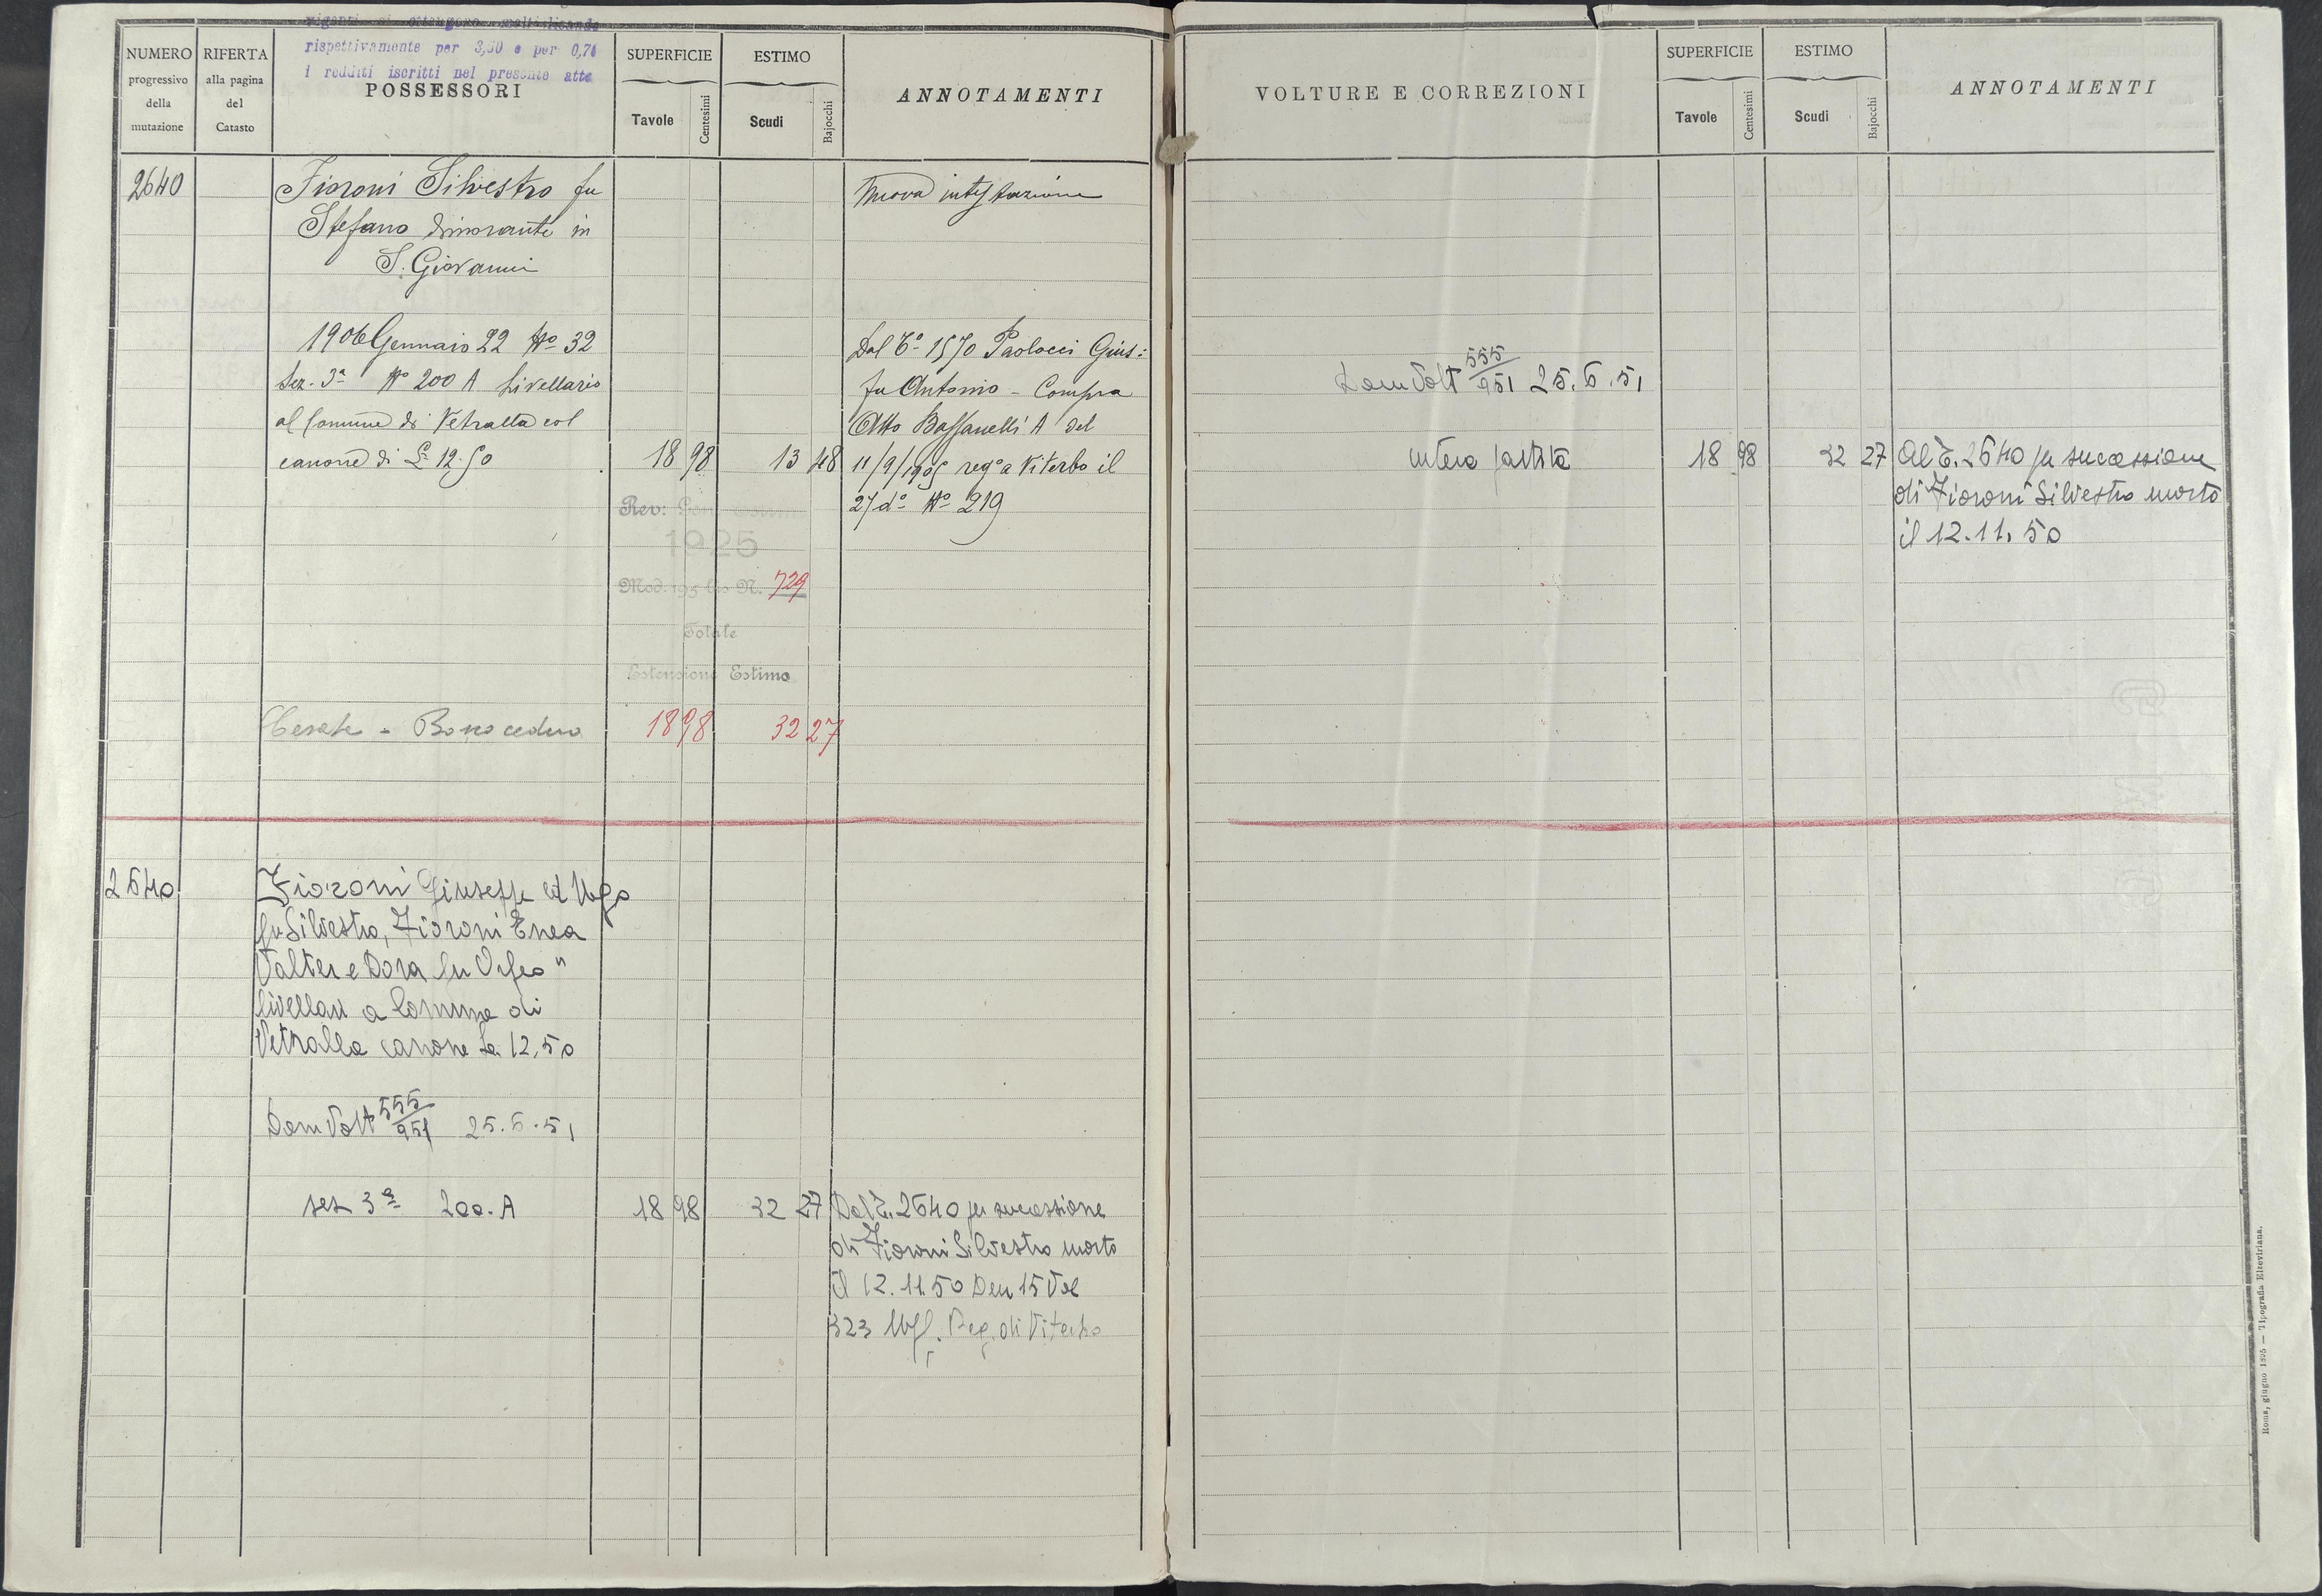 rispettivamente per 3,50 e per 0,74
i redditi iscritti nel presente atto
NUMERO
progressivo
della
mutazione
RIFERTA
alla pagina
del
Catasto
POSSESSORI
SUPERFICIE
Tavole
Centesimi
ESTIMO
Scudi
Bajocchi
ANNOTAMENTI
2640
Fioroni Silvestro fu
Stefano dimorante in
S. Giovanni
Nuova intestazione
1906 Gennaio 22 No 32
Sez. 3a No 200 A Livellario
al Comune di Vetralla col
canone di £ 12.50
18 98
13 48
Dal To 1570 Paolocci Gius:
fu Antonio - Compra
Atto Bassanelli A del
11/9/1905 rego a Viterbo il
27 do No 219
Rev: Gen. Estimi
1925
Mod. 195 bis N. 729
Totale
Estensione Estimo
Cerrete - Bosco ceduo
18 98
32 27
2640
Fioroni Giuseppe ed Ugo
fu Silvestro, Fioroni Enea
Valter e Dora fu Orfeo "
livellari a Comune di
Vetralla canone L. 12,50
Dom Volt 555/951 25.6.51
sez 3a 200.A
18 98
32 27
Dal T. 2640 per successione
di Fioroni Silvestro morto
il 12.11.50 Den 15 Vol
323 Uff. Reg. di Viterbo
VOLTURE E CORREZIONI
SUPERFICIE
Tavole
Centesimi
ESTIMO
Scudi
Bajocchi
ANNOTAMENTI
Dom Volt 555/951 25.6.51
intera partita
18 98
32 27
Al T. 2640 per successione
di Fioroni Silvestro morto
il 12.11.50
Roma, giugno 1895 — Tipografia Elzeviriana.